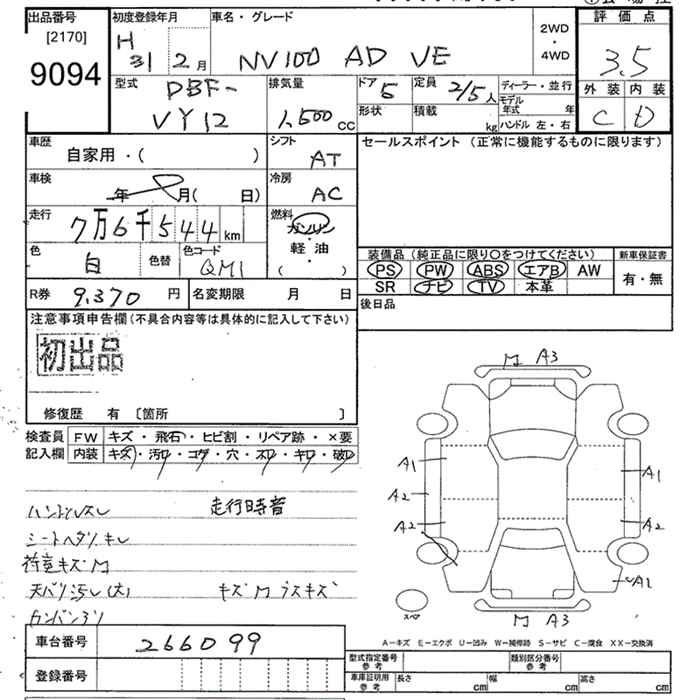 出品番号
[2170]
9094
初度登録年月
H 31 2月
車名・グレード
NV100 AD VE
2WD
・
4WD
評価点
3.5
外装 内装
C D
型式
DBF-
VY12
排気量
1,500 CC
ドア 5
形状
定員 2/5人
積載 kg
ディーラー・並行
モデル年式 年
ハンドル 左・右
車歴
自家用・( )
シフト
AT
セールスポイント (正常に機能するものに限ります)
車検
年 月( 日)
冷房
AC
走行
7万6千544km
燃料
ガソリン
軽油
( )
色
白
色替
色コード
QM1
装備品 (純正品に限り○をつけてください)
PS PW ABS エアB AW
SR ナビ TV 本革
新車保証書
有・無
R券 9,370円
名変期限 月 日
後日品
注意事項申告欄(不具合内容等は具体的に記入して下さい)
初出品
修復歴 有 [箇所 ]
検査員
記入欄
FW キズ・飛石・ヒビ割・リペア跡・×要
内装 キズ・汚レ・コゲ・穴・スレ・キレ・破レ
ハンドルスレ 走行時音
シートヘタリキレ
荷室キズM
天バリ汚レ(大) キズM ラスキズ
カンバンヌリ
M A3
A1 A1
A2 A2
A2
A2
スペア
M A3
A―キズ E―エクボ U―凹み W―補修跡 S―サビ C―腐食 XX―交換済
車台番号 266099
登録番号
型式指定番号
参考
類別区分番号
参考
車庫証明用
参考
長さ cm 幅 cm 高さ cm